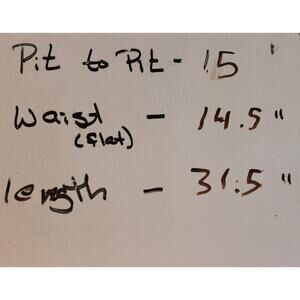 Pit to Pit - 15"
Waist - 14.5"
(flat)
length - 31.5"